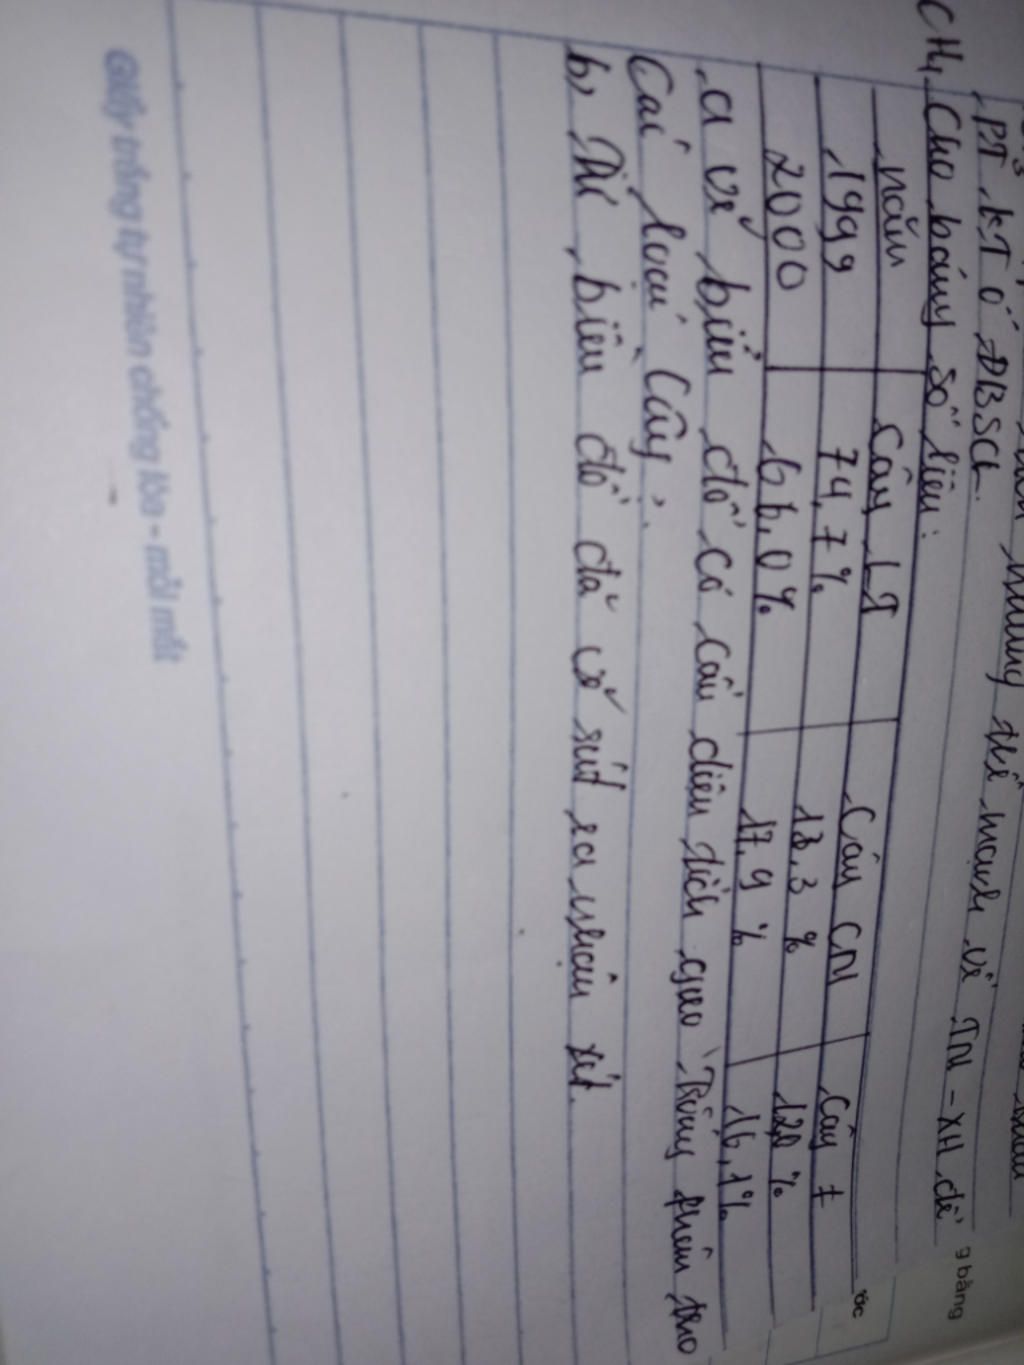 những thế mạnh về TN - XH để
PT KT ở ĐBSCL.
g bằng
CH1 Cho bảng số liệu:
ước
năm Cây LT Cây CN Cây t
1999 74,7% 13,3 % 12,0 %
2000 66,0% 17,9 % 16,1%
a vẽ biểu đồ cơ cấu diện tích gieo trồng phân theo
Các loại Cây.
b, Từ biểu đồ đã vẽ rút ra nhận xét.
Giấy trắng tự nhiên chống lóa - mỏi mắt